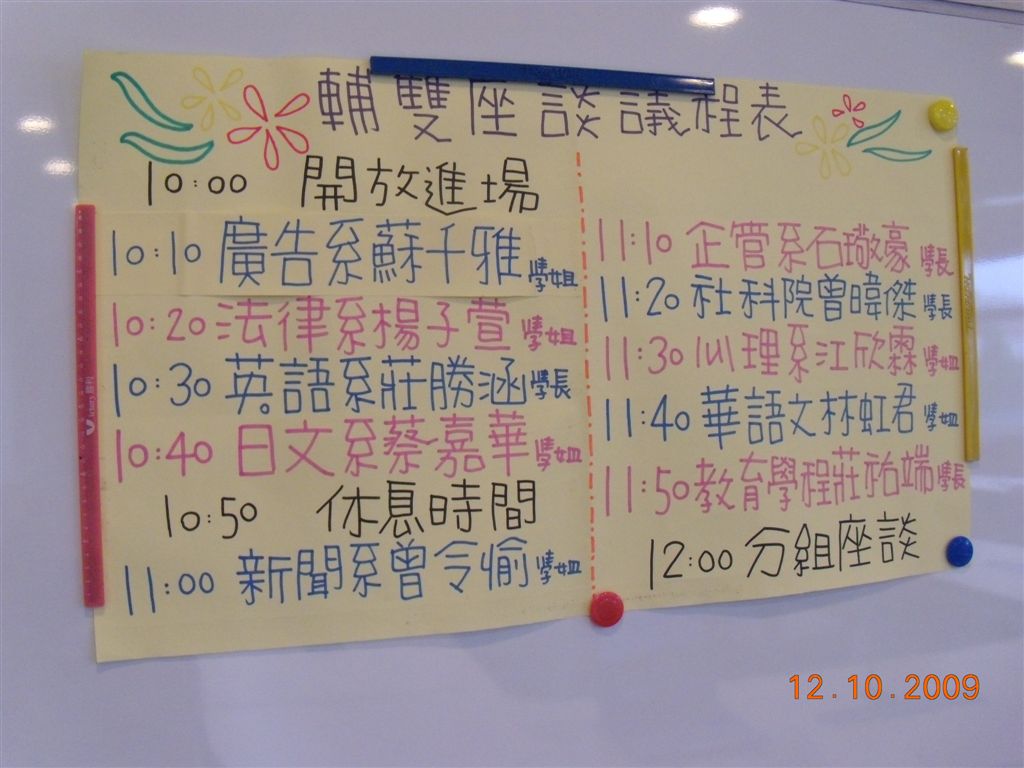 輔雙座談議程表
10:00 開放進場
10:10 廣告系蘇千雅學姐
10:20 法律系楊子萱學姐
10:30 英語系莊勝涵學長
10:40 日文系蔡嘉華學姐
10:50 休息時間
11:00 新聞系曾令愉學姐
11:10 企管系石璥豪學長
11:20 社科院曾暐傑學長
11:30 心理系江欣霖學姐
11:40 華語文林虹君學姐
11:50 教育學程莊祐端學長
12:00 分組座談
12.10.2009